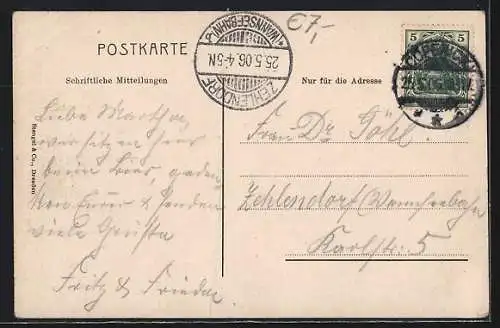 €7,-
POSTKARTE
ZEHLENDORF
* (WANNSEEBAHN) *
25.5.06. 4-5N.
5 5
Schriftliche Mitteilungen
Nur für die Adresse
Liebe Martha,
wir sitzen hier
beim Bier, geden-
ken Eurer & senden
viele Grüße
Fritz & Frieda
Frau Dr. Göhl.
Zehlendorf (Wannseebahn
Karlstr: 5
Hempel & Co., Dresden